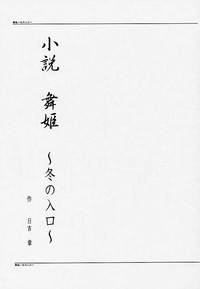 小説 舞姫
～冬の入口～
作 日吉 章